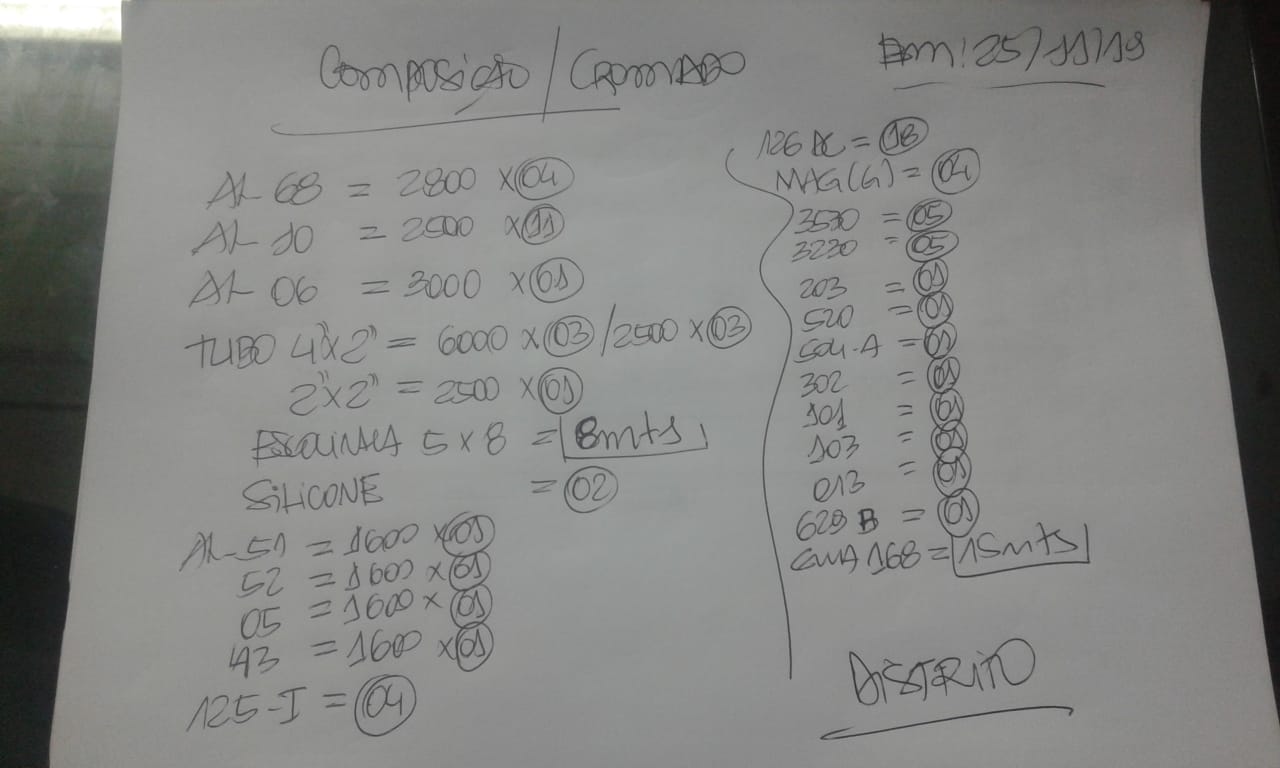 Composição / Cromado
Em: 25/11/19
AL 68 = 2800 x 04
AL 10 = 2500 x 11
AL 06 = 3000 x 01
TUBO 4"x2" = 6000 x 03 / 2500 x 03
2"x2" = 2500 x 01
5 x 8 = 8mts
SILICONE = 02
AL-51 = 1600 x 01
52 = 1600 x 01
05 = 1600 x 01
43 = 1600 x 01
125-I = 04
126 = 18
MAG(G) = 04
3530 = 05
3230 = 05
203 = 01
520 = 01
504-A = 01
302 = 01
101 = 01
103 = 01
013 = 01
629 B = 01
168 = 15mts
DISTRITO